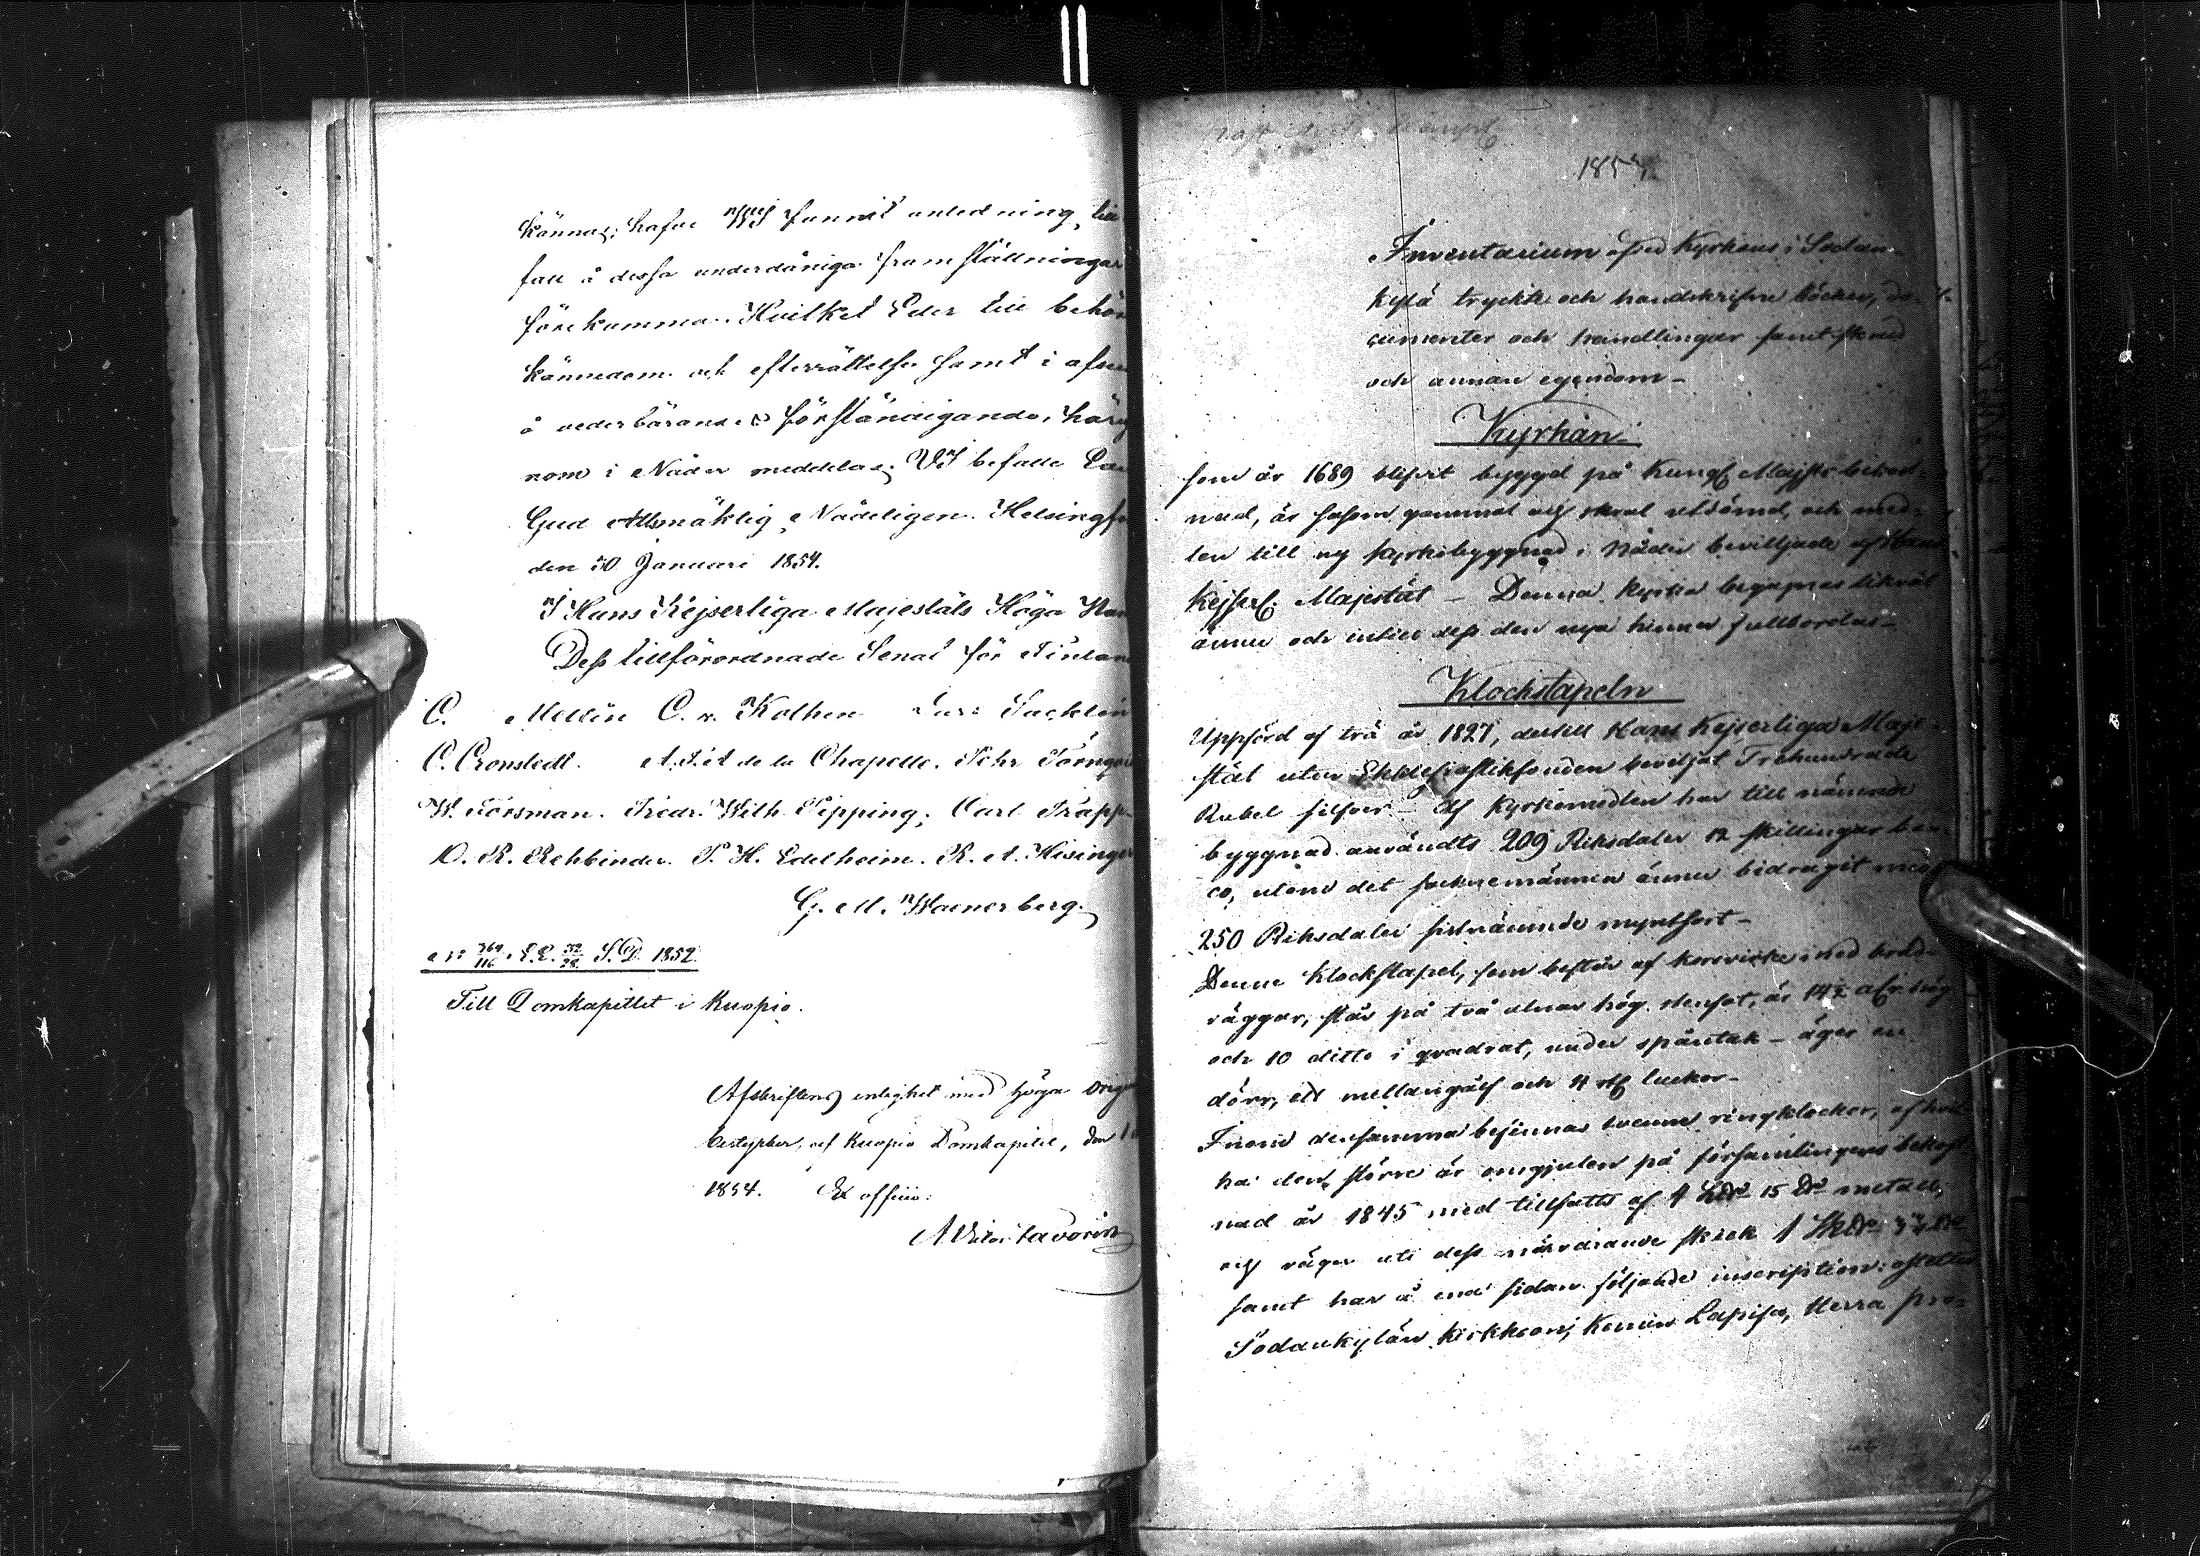 kännas; hafve WJ funnit anledning, till
fall å dessa underdåniga framställningar
förekomma. Hvilket Eder till behö
kännedom och efterrättelse samt i afse
å vederbörandes förständigande, härig
nom i Nåder meddelas; VJ befalle Eder
Gud Allsmäktig Nådeligen. Helsingfo
den 30 Januari 1854.
I Hans Kejserliga Majestäts Höga Na
Dess tillförordnade Senat för Finlan
C. Mellin C. v. Kothen Lars Sacklén
C. Cronstedt. A. F. et de la Chapelle. Fehr Törngre
W. Forsman. Fredr. Wilh. Pipping. Carl Trapp.
O. R. Rehbinder. P. H. Edelheim. R. A. Hisinge
G. M. Waenerberg.
N:o 369/116. E.E. S.D. 1852.
Till Domkapitlet i Kuopio.
Afskriftens enlighet med höga orig
bestyrker, af Kuopio Domkapitel, den
1854. Ex officio:
1854
Inventarium öfver Kyrkans i Sodan
kylä tryckte och handskrifne böcker, do
cumenter och handlingar samt skrud
och annan egendom –
Kyrkan
som år 1689 blifvit byggd på Kungl. Majsts bekost-
nad, är såsom gammal och skral utdömd, och med-
len till ny kyrkobyggnad i Nåder beviljade af Hans
Kejserl. Majestät – Denna kyrka begagnas likväl
ännu och intill dess den nya hinner fullbordas –
Klockstapeln
Uppförd af trä år 1827, dertill Hans Kejserliga Maje-
stät utur Ecklesiastikfonden beviljat Trehundrade
Rubel silfver – Af Kyrkomedlen har till nämnde
byggnad användts 209 Riksdaler 12 skillingar ban
co, utom det sockenemännen ännu bidragit med
250 Riksdaler sistnämnde myntsort –
Denne Klockstapel, som består af korsvirke med bräd-
väggar, står på två alnar hög stenfot, är 14½ alnar hög
och 10 ditto i quadrat, under spåntak – äger en
dörr, ett mellangolf och 4 st. luckor –
Inom densamma befinnas tvenne ringklockor, af hvil
ka den större är omgjuten på församlingens bekost
nad år 1845 med tillsatts af 4 L℔ 15 ℔ metall,
och väger uti dess närvarande skick 1 Sk℔
samt har å ena sidan följande inscription:
Sodankylän kirkkoon, Kemin Lapissa, Herra pro-